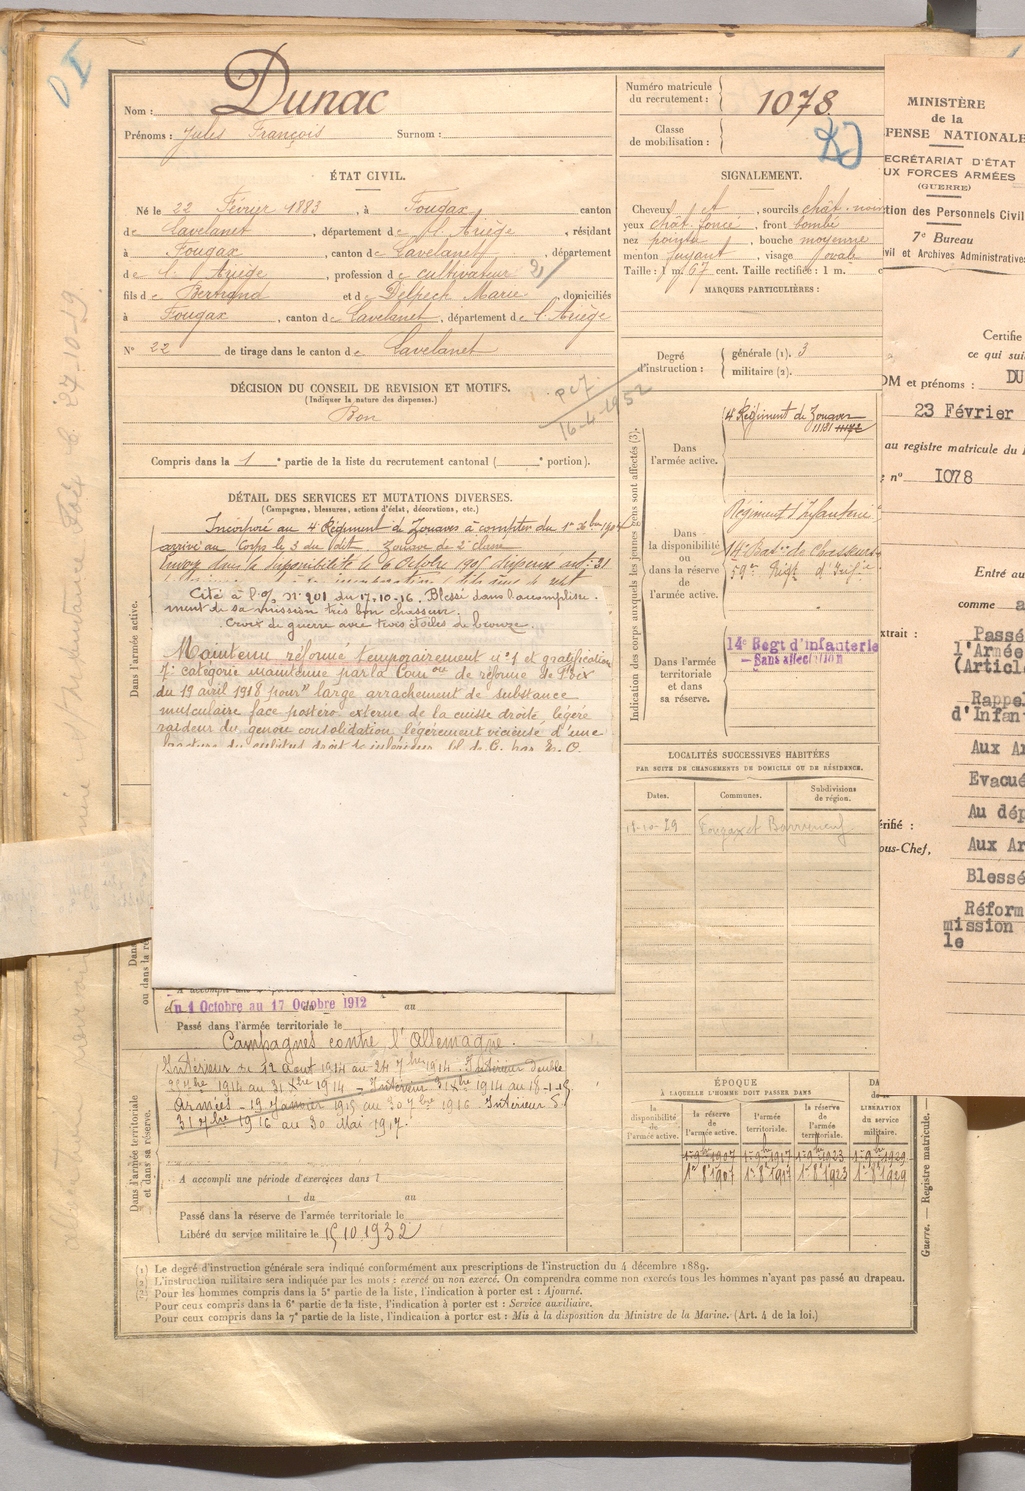 Nom : Dunac
Prénoms : Jules François Surnom :
Numéro matricule du recrutement : 1078
Classe de mobilisation :
ÉTAT CIVIL.
Né le 22 Février 1883, à Fougax canton
de Lavelanet, département de l'Ariège, résidant
à Fougax, canton de Lavelanet, département
de l'Ariège, profession de cultivateur 2/
fils de Bertrand et de Delpech Marie, domiciliés
à Fougax, canton de Lavelanet, département de l'Ariège
N° 22 de tirage dans le canton de Lavelanet
SIGNALEMENT.
Cheveux et, sourcils chât. noir
yeux chât. foncé, front bombé
nez pointu, bouche moyenne
menton fuyant, visage ovale
Taille : 1 m. 67 cent. Taille rectifiée : 1 m. c
MARQUES PARTICULIÈRES :
Degré d'instruction : générale (1). 3
militaire (2).
DÉCISION DU CONSEIL DE REVISION ET MOTIFS.
(Indiquer la nature des dispenses.)
Bon
16-4-1952
Compris dans la 1e partie de la liste du recrutement cantonal ( e portion).
DÉTAIL DES SERVICES ET MUTATIONS DIVERSES.
(Campagnes, blessures, actions d'éclat, décorations, etc.)
Dans l'armée active.
Incorporé au 4e Régiment de Zouaves à compter du 1er Xbre 1904
arrivé au Corps le 3 du dit. Zouave de 2e classe
Envoyé dans la disponibilité le 6 Octobre 1905 dispensé art. 21
Cité à l'o/ n° 201 du 17-10-16. Blessé dans l'accomplisse-
ment de sa mission très bon chasseur.
Croix de guerre avec trois étoiles de bronze.
Maintenu réformé temporairement n°1 et gratification
7e catégorie maintenue par la Comon de réforme de Foix
du 19 avril 1918 pour "large arrachement de substance
musculaire face postéro externe de la cuisse droite, légère
raideur du genou consolidation légèrement vicieuse d'une
fracture du cubitus droit
Indication des corps auxquels les jeunes gens sont affectés (3).
Dans l'armée active.
4e Régiment de Zouaves
Dans la disponibilité ou dans la réserve de l'armée active.
Régiment d'Infanterie
14e Baton de Chasseurs
59e Régt d'Infie
Dans l'armée territoriale et dans sa réserve.
14e Regt d'infanterie
— Sans affectation
LOCALITÉS SUCCESSIVES HABITÉES
PAR SUITE DE CHANGEMENTS DE DOMICILE OU DE RÉSIDENCE.
Dates. Communes. Subdivisions de région.
Fougax et Barrineuf
du 1 Octobre au 17 Octobre 1912 au
Passé dans l'armée territoriale le
Campagnes contre l'Allemagne.
Intérieur du 12 Août 1914 au 24 7bre 1914. Intérieur double
25 7bre 1914 au 31 Xbre 1914 – Intérieur 31 Xbre 1914 au 18-1-15
Armées – 19 Janvier 1915 au 30 7bre 1916 Intérieur
31 7bre 1916 au 30 Mai 1917.
Dans l'armée territoriale et dans sa réserve.
A accompli une période d'exercices dans l
du au
Passé dans la réserve de l'armée territoriale le
Libéré du service militaire le 15.10.1932
ÉPOQUE
À LAQUELLE L'HOMME DOIT PASSER DANS
la disponibilité de l'armée active.
la réserve de l'armée active.
l'armée territoriale.
la réserve de l'armée territoriale.
DA
de
LIBÉRATION du service militaire.
1er 9bre 1907 1er 9bre 1917 1er 9bre 1923 1er 9bre 1929
1er 8bre 1907 1er 8bre 1917 1er 8bre 1923 1er 8bre 1929
Guerre. — Registre matricule.
(1) Le degré d'instruction générale sera indiqué conformément aux prescriptions de l'instruction du 4 décembre 1889.
(2) L'instruction militaire sera indiquée par les mots : exercé ou non exercé. On comprendra comme non exercés tous les hommes n'ayant pas passé au drapeau.
Pour les hommes compris dans la 5e partie de la liste, l'indication à porter est : Ajourné.
Pour ceux compris dans la 6e partie de la liste, l'indication à porter est : Service auxiliaire.
Pour ceux compris dans la 7e partie de la liste, l'indication à porter est : Mis à la disposition du Ministre de la Marine. (Art. 4 de la loi.)
MINISTÈRE
de la
FENSE NATIONALE
ECRÉTARIAT D'ÉTAT
UX FORCES ARMÉES
(GUERRE)
tion des Personnels Civil
7e Bureau
vil et Archives Administratives
Certifie
ce qui sui
OM et prénoms : DU
23 Février
au registre matricule du
n° I078
Entré au
comme a
xtrait :
Passé
l'Armée
(Articl
Rappe
d'Infan
Aux Ar
Evacué
Au dép
érifié :
ous-Chef,
Aux Ar
Blessé
Réform
mission
le